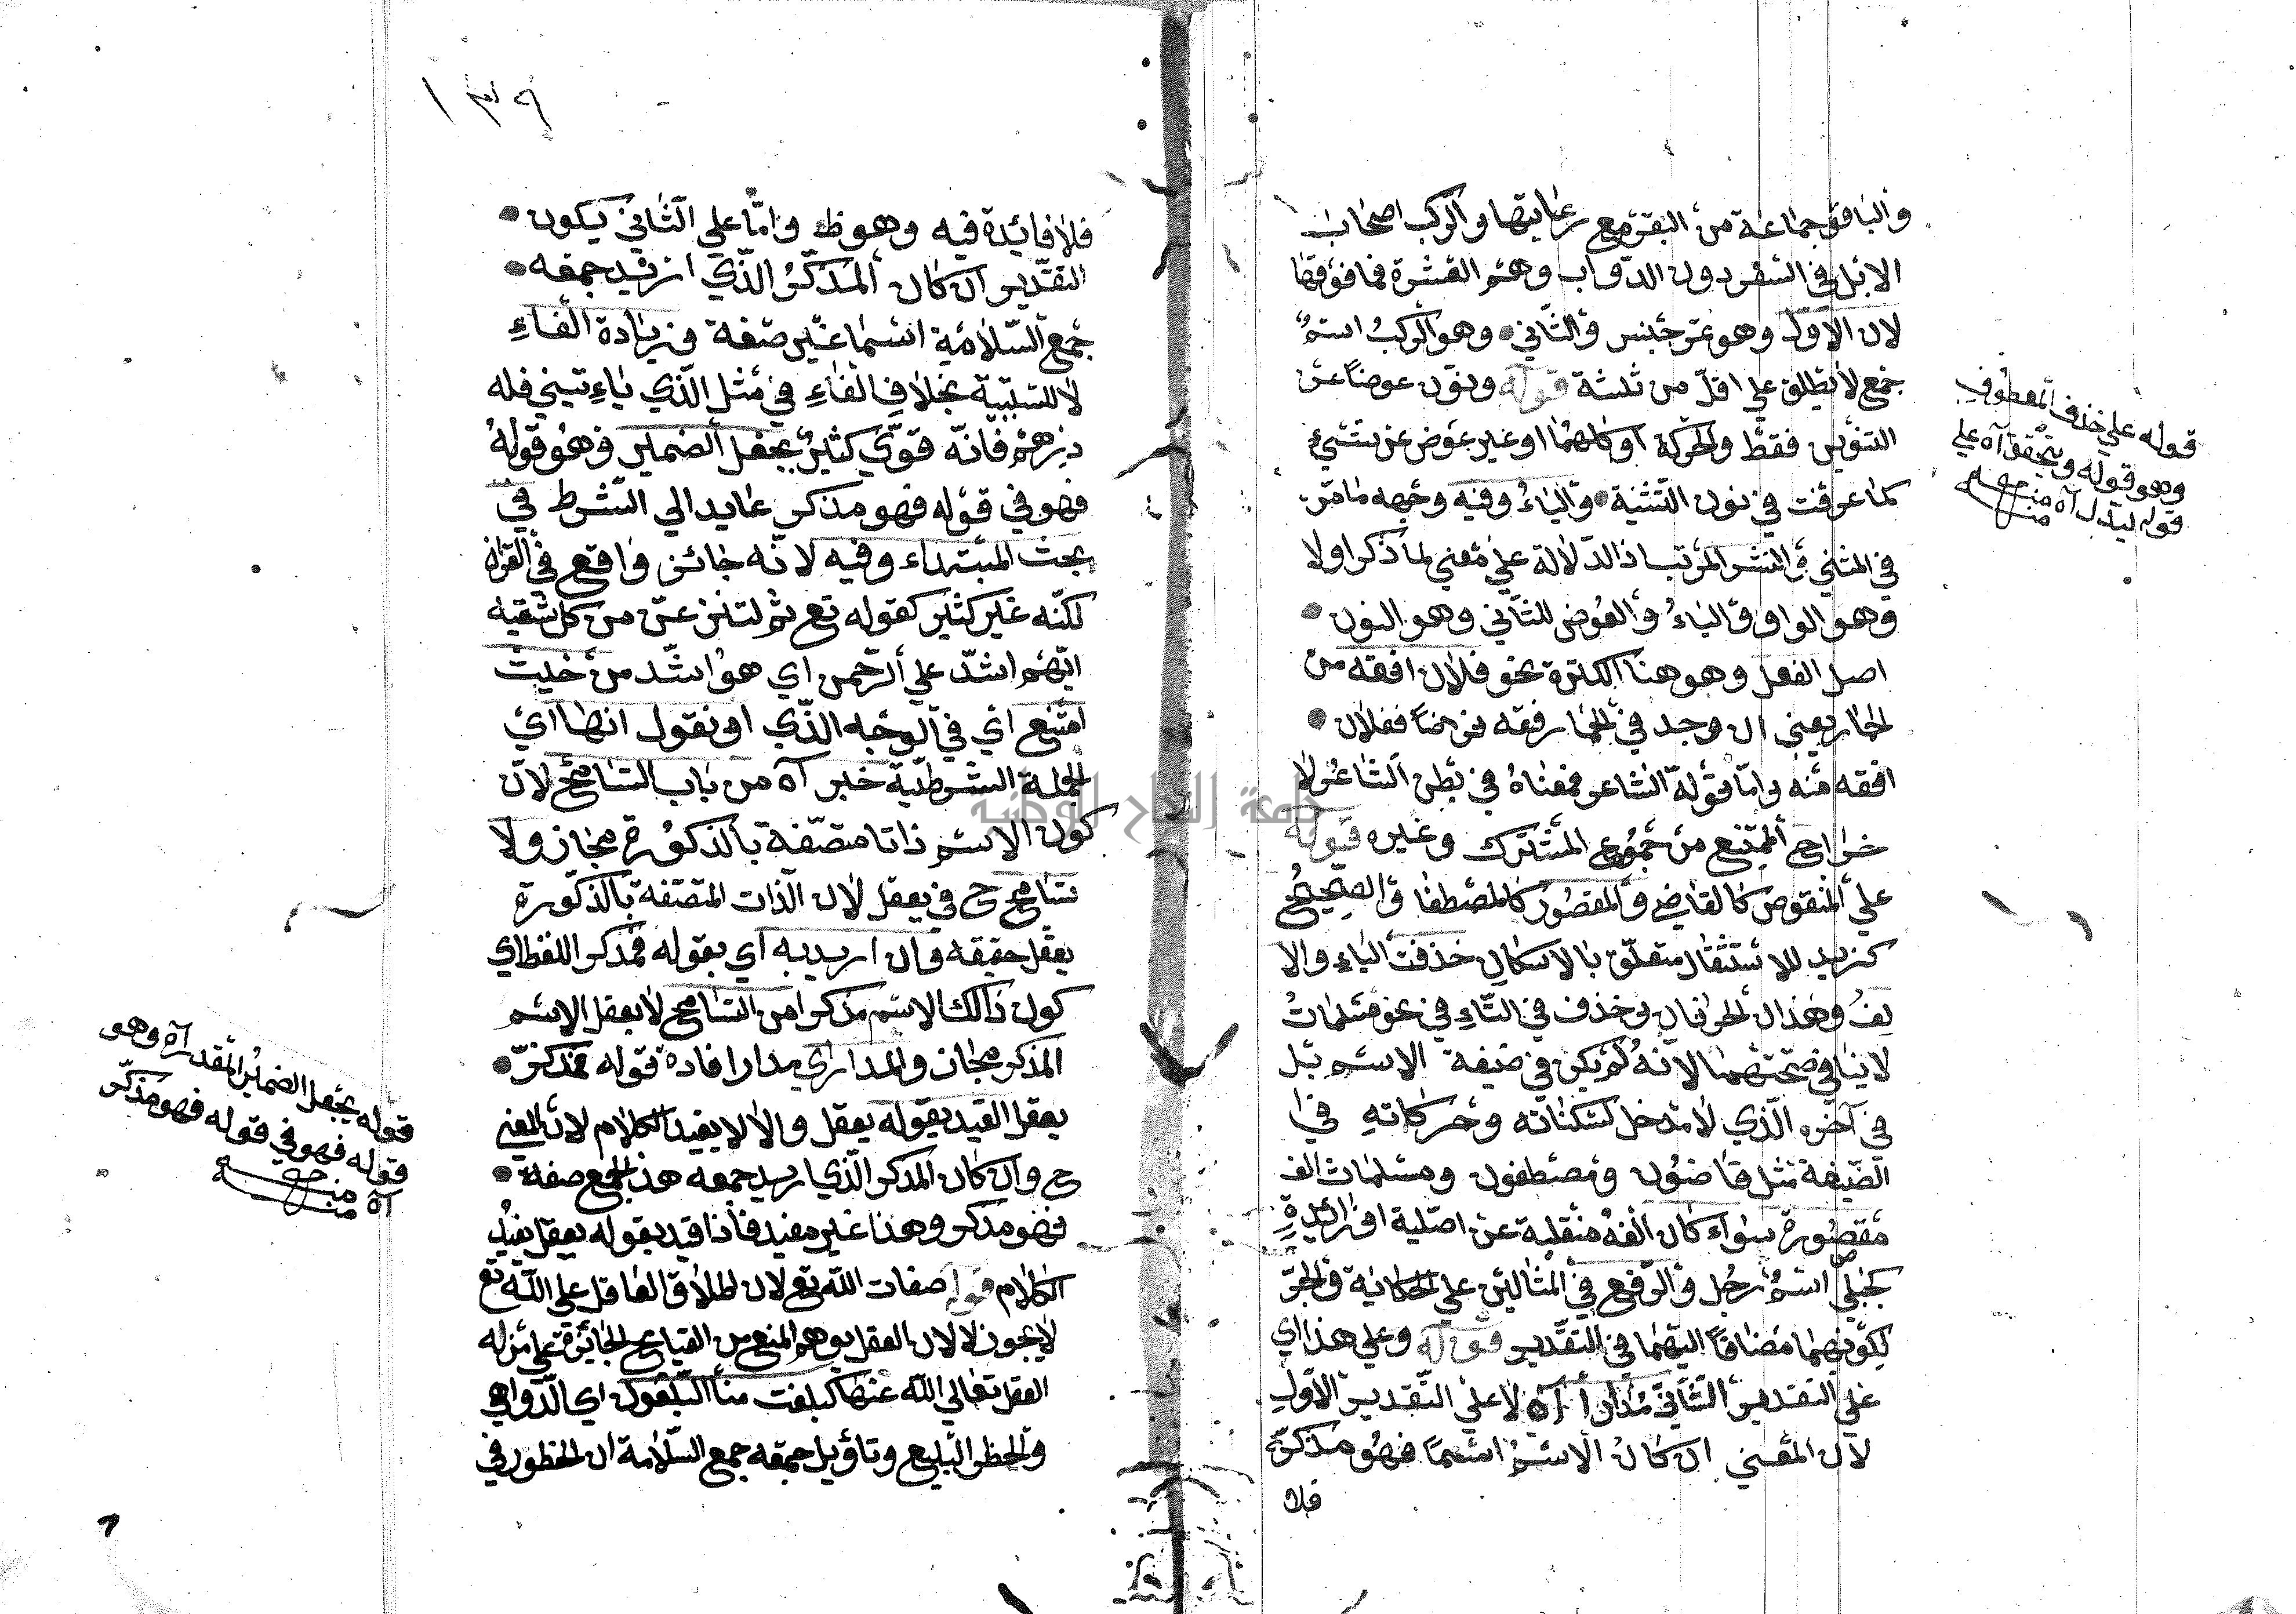 والباقر جماعة من البقر مع رعايتها والركب اصحاب
الابل في السفر دون الدواب وهم العشرة فما فوقها
لان الاول وهو تمر جنس والثاني وهو الركب اسم
جمع لا يطلق علي اقل من ثلثة قوله ونون عوضا عن
التنوين فقط والحركة او كليهما او غير عوض عن شيء
كما عرفت في نون التثنية والياء وفيه وجهه ما مر
في المثني والنشر المرتب اذ الدلالة علي معني لما ذكر اولا
وهو الواو والياء والعوض للثاني وهو النون
اصل الفعل وهو هنا الكثرة نحو فلان افقه من
الحمار يعني ان وجد في الحمار فقه فرضا ففلان
افقه منه واما قوله الشاعر فمعناه في بطن الشاعر لا
خراج الممتنع من جموع المشترك وغيره قوله
علي المنقوص كالقاضي والمقصور كالمصطفا والصحيح
كزيد للاستثقال متعلق بالاسكان حذفت الياء والا
لف وهذان الحرفان وحذف في التاء في نحو مسلمات
لا ينافي صحتهما لانه لم يكن في صيغة الاسم بل
في آخره الذي لا مدخل لسكناته وحركاته في
الصيغة مثل قاضون ومصطفون ومسلمات الف
مقصورة سواء كان الفه منقلبة عن اصلية او زائدة
كحبلي اسم رجل والرفع في المثالين علي الحكاية والجر
لكونهما مضافا اليهما في التقدير قوله وعلي هذا اي
علي التقدير الثاني مدار أ آه لا علي التقدير الاول
لان المعني ان كان الاسم اسما فهو مذكر
فلا
قوله علي حذف المعطوف
وهو قوله ويتحقق آه علي
قوله ليدل آه منه
١٣٩
فلا فائدة فيه وهو ظ واما علي الثاني يكون
التقدير ان كان المذكر الذي اريد جمعه
جمع السلامة اسما غير صفة فزيادة الفاء
لا للسببية بخلاف الفاء في مثل الذي ياءتيني فله
درهم فانه قوي كثير بجعل الضمير وهو قوله
فهو في قوله فهو مذكر عايد الي الشرط في
بحث المبتداء وفيه لانه جائز واقع في القران
لكنه غير كثير كقوله تع ثم لننزعن من كل شيعة
ايهم اشد علي الرحمن اي هو اشد من خليت
امتنع اي في الوجه الذي او نقول انها اي
الجملة الشرطية خبر آه من باب التسامح لان
كون الاسم ذاتا متصفة بالذكورة مجاز ولا
تسامح ح في يعقل لان الذات المتصفة بالذكورة
يعقل حقيقة وان اريد به اي بقوله فمذكر اللفظ اي
كون ذالك الاسم مذكرا من التسامح لا يعقل الاسم
المذكر مجاز والمدار اي مدار افادة قوله فمذكر
يعقل القيد بقوله يعقل والا لا يفيد الكلام لان المعني
ح وان كان المذكر الذي اريد جمعه هذ الجمع صفة
فهو مذكر وهذا غير مفيد فاذا قيد بقوله يعقل يفيد
الكلام قوله صفات الله تع لان اطلاق العاقل علي الله تع
لا يجوز لا لان العقل يوهم المنع من القبايح الجائزة علي منزله
العقل تعالي الله عنها كبلغت منا البلغون اي الدواهي
والحظر البليغ وتاؤيل جمعه جمع السلامة ان الخطور في
قوله بجعل الضمير المقدر آه وهو
قوله فهو في قوله فهو مذكر
آه منه
جامعة النجاح الوطنية